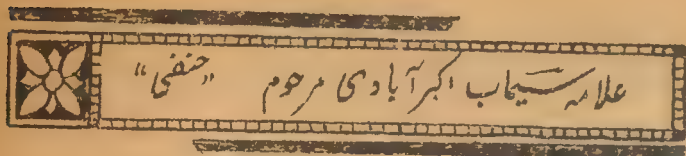 علامہ سیماب اکبرآبادی مرحوم "حنفی"